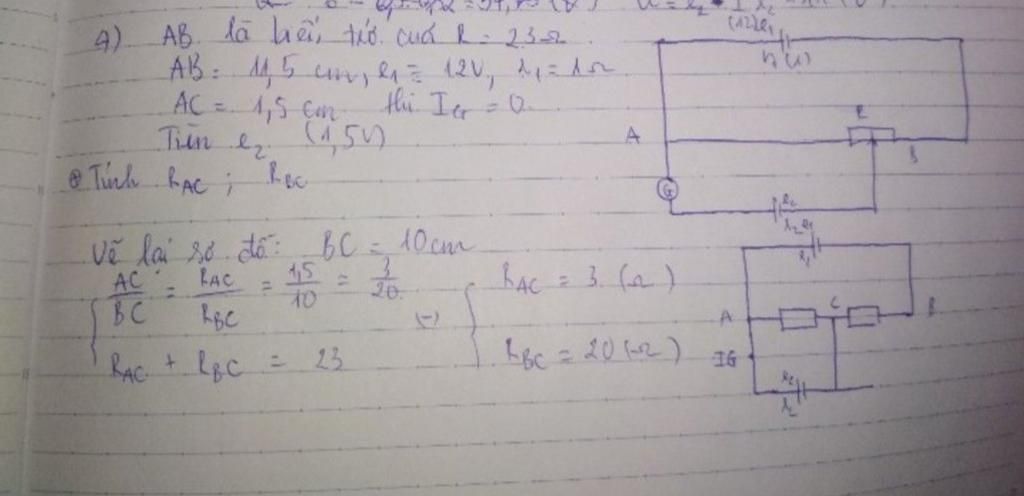 4) AB là biến trở có R = 23Ω
AB = 11,5 cm, e₁ = 12V, r₁ = 1Ω
AC = 1,5 cm thì I_G = 0
Tìm e₂ (1,5V)
⊕ Tính R_AC ; R_BC
Vẽ lại sơ đồ: BC = 10cm
AC/BC = R_AC/R_BC = 1,5/10 = 3/20
R_AC + R_BC = 23
R_AC = 3 (Ω)
R_BC = 20 (Ω)
(12) e₁
r₁ (1)
A
R
B
G
A
C
B
IG